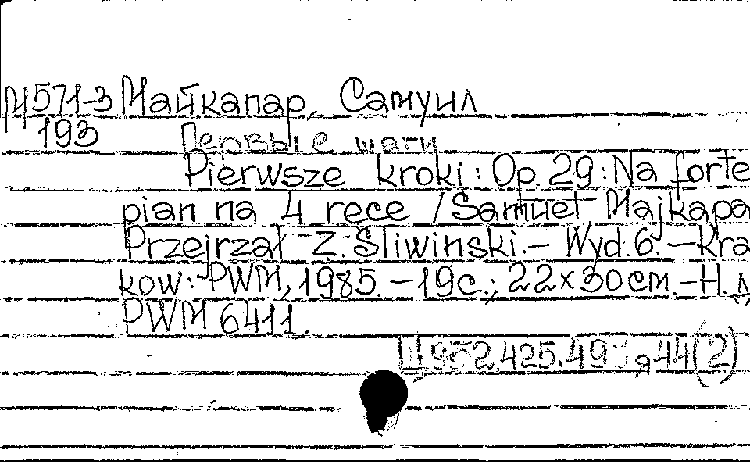 М571-3 Майкапар, Самуил
193 Первые шаги
Pierwsze kroki : Op. 29 : Na forte
pian na 4 ręce / Samuel Majkapa
Przejrzał Z. Śliwiński. - Wyd. 6. - Kra
ków : PWM, 1985. - 19 с.; 22x30 см. - Н. л
PWM 6411.
Ц952.425.49 я44(2)